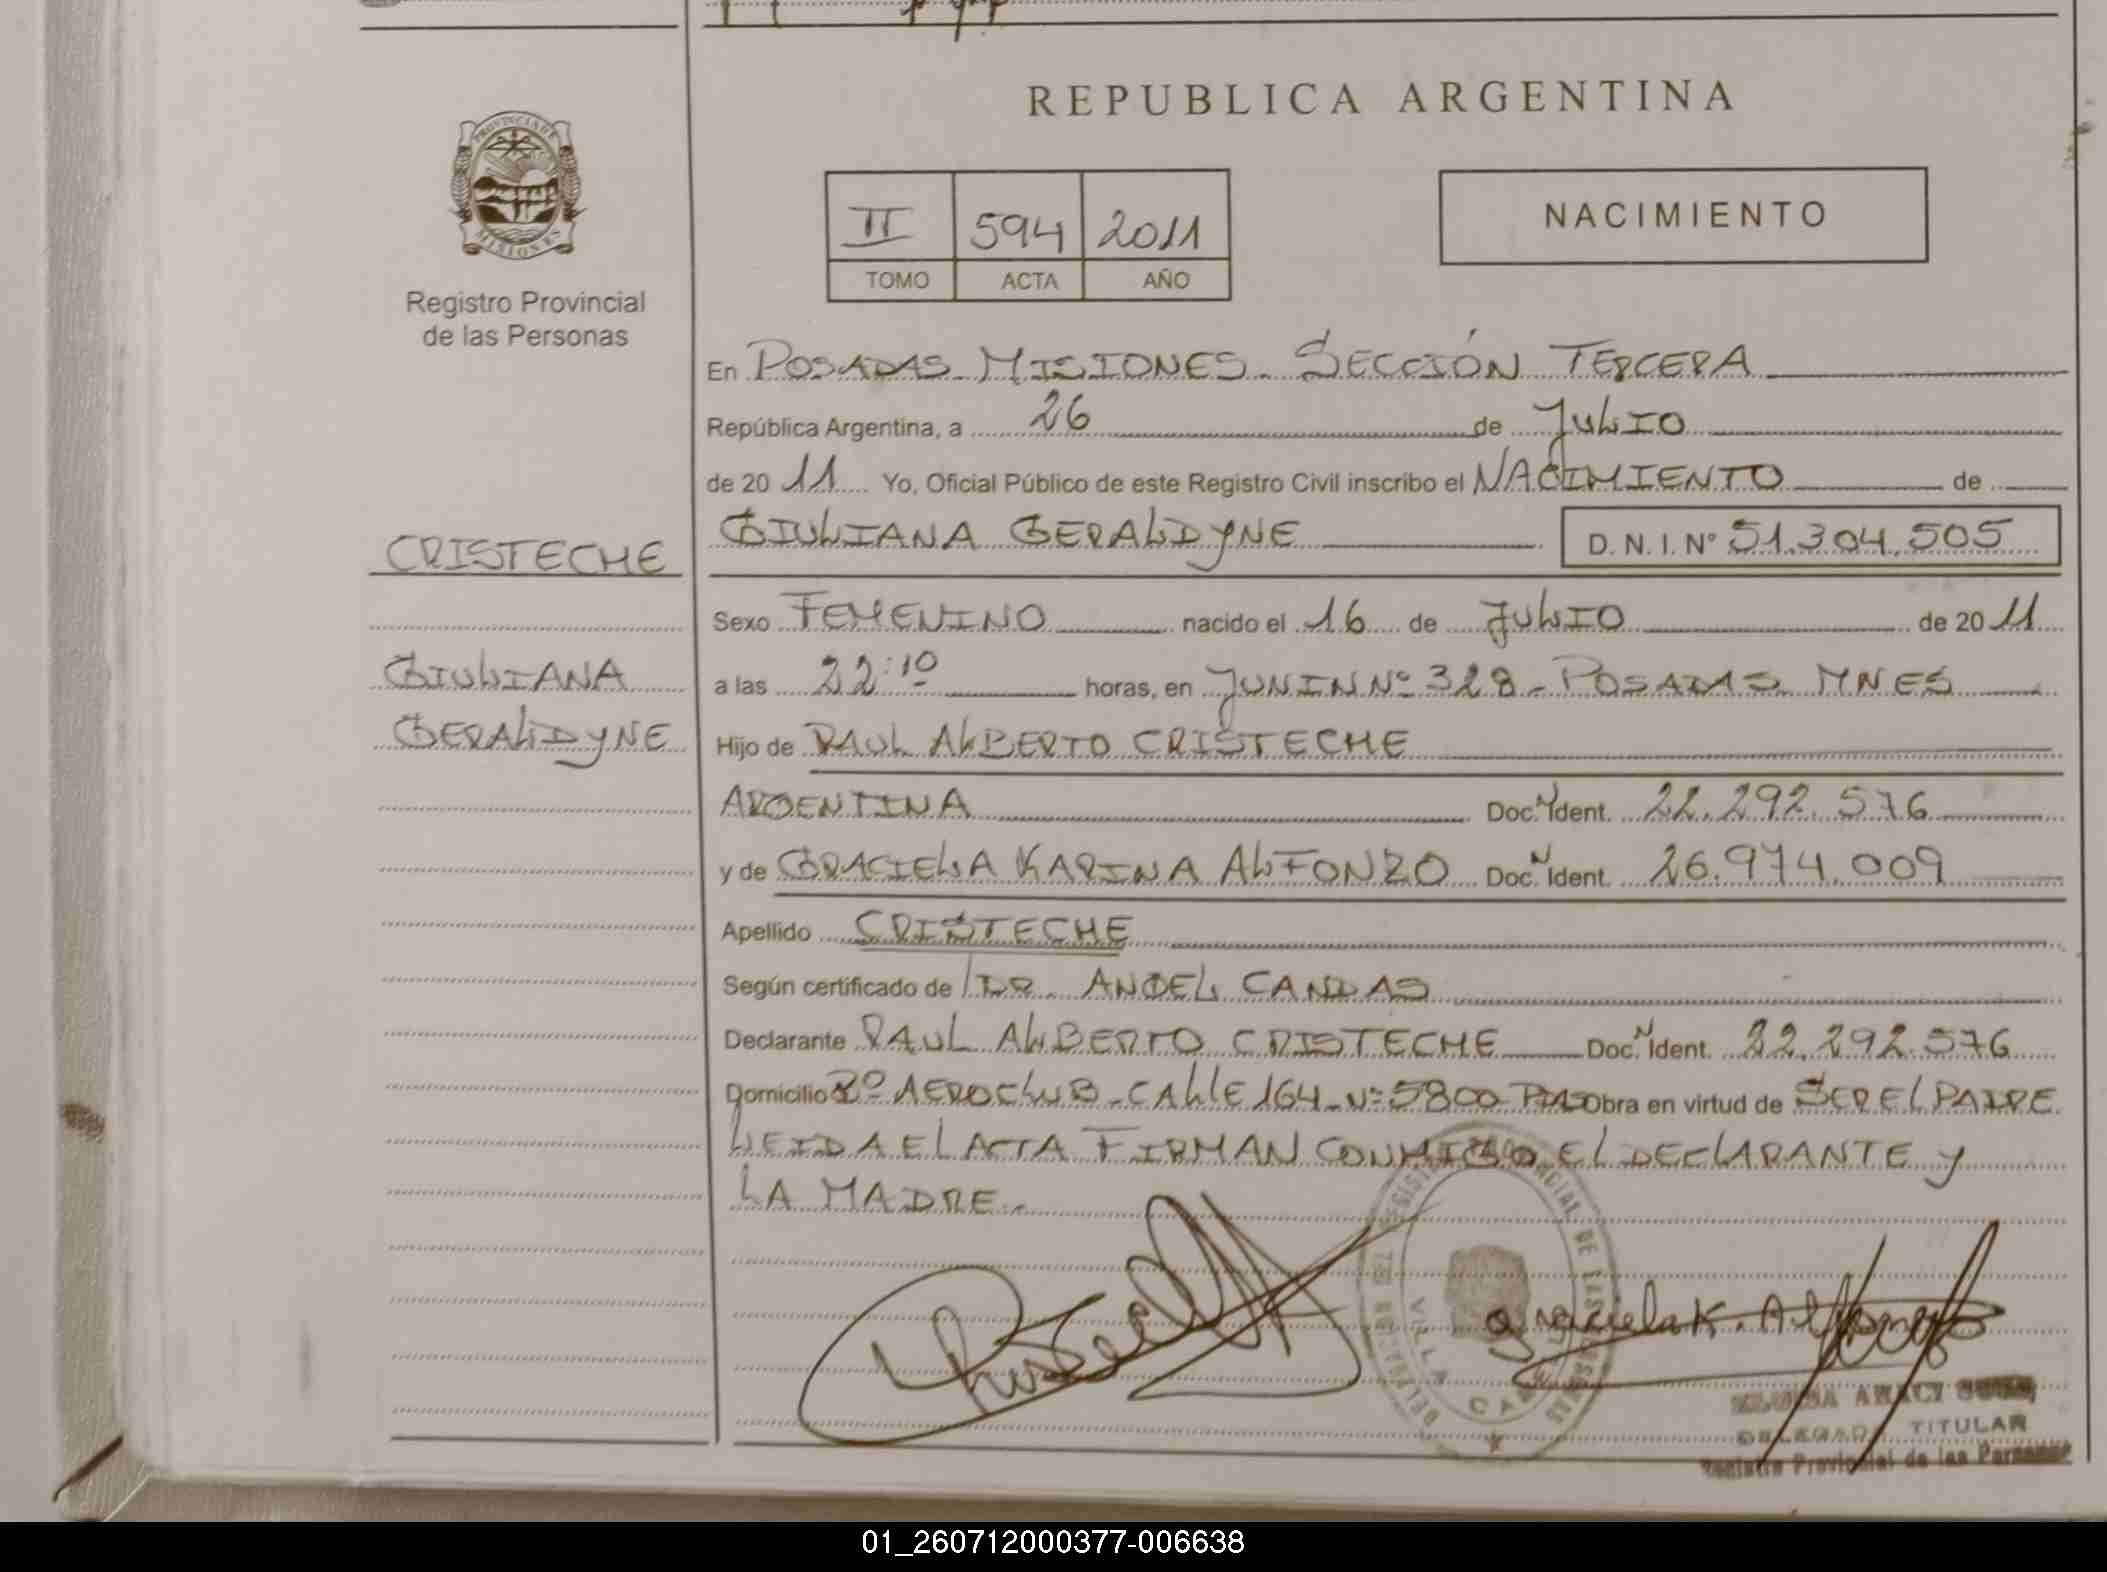 REPUBLICA ARGENTINA
PROVINCIA DE
MISIONES
Registro Provincial
de las Personas
II 594 2011
TOMO ACTA AÑO
NACIMIENTO
En POSADAS MISIONES. SECCIÓN TERCERA
República Argentina, a 26 de JULIO
de 2011 Yo, Oficial Público de este Registro Civil inscribo el NACIMIENTO de
GIULIANA GERALDYNE D. N. I. N° 51.304.505
CRISTECHE
GIULIANA
GERALDYNE
Sexo FEMENINO nacido el 16 de JULIO de 2011
a las 22:10 horas, en JUNIN Nº 328 - POSADAS MNES
Hijo de RAUL ALBERTO CRISTECHE
ARGENTINA Doc. N Ident. 22.292.576
y de GRACIELA KARINA ALFONZO Doc. N Ident. 26.974.009
Apellido CRISTECHE
Según certificado de DR. ANGEL CANDAS
Declarante RAUL ALBERTO CRISTECHE Doc. N Ident. 22.292.576
Domicilio Bº AEROCLUB - CALLE 164 - Nº 5800 - PDAS Obra en virtud de SER EL PADRE
LEIDA EL ACTA FIRMAN CONMIGO EL DECLARANTE Y
LA MADRE.-
Graciela K. Alfonzo
VILLA
DELEGADA TITULAR
Registro Provincial de las Personas
01_260712000377-006638